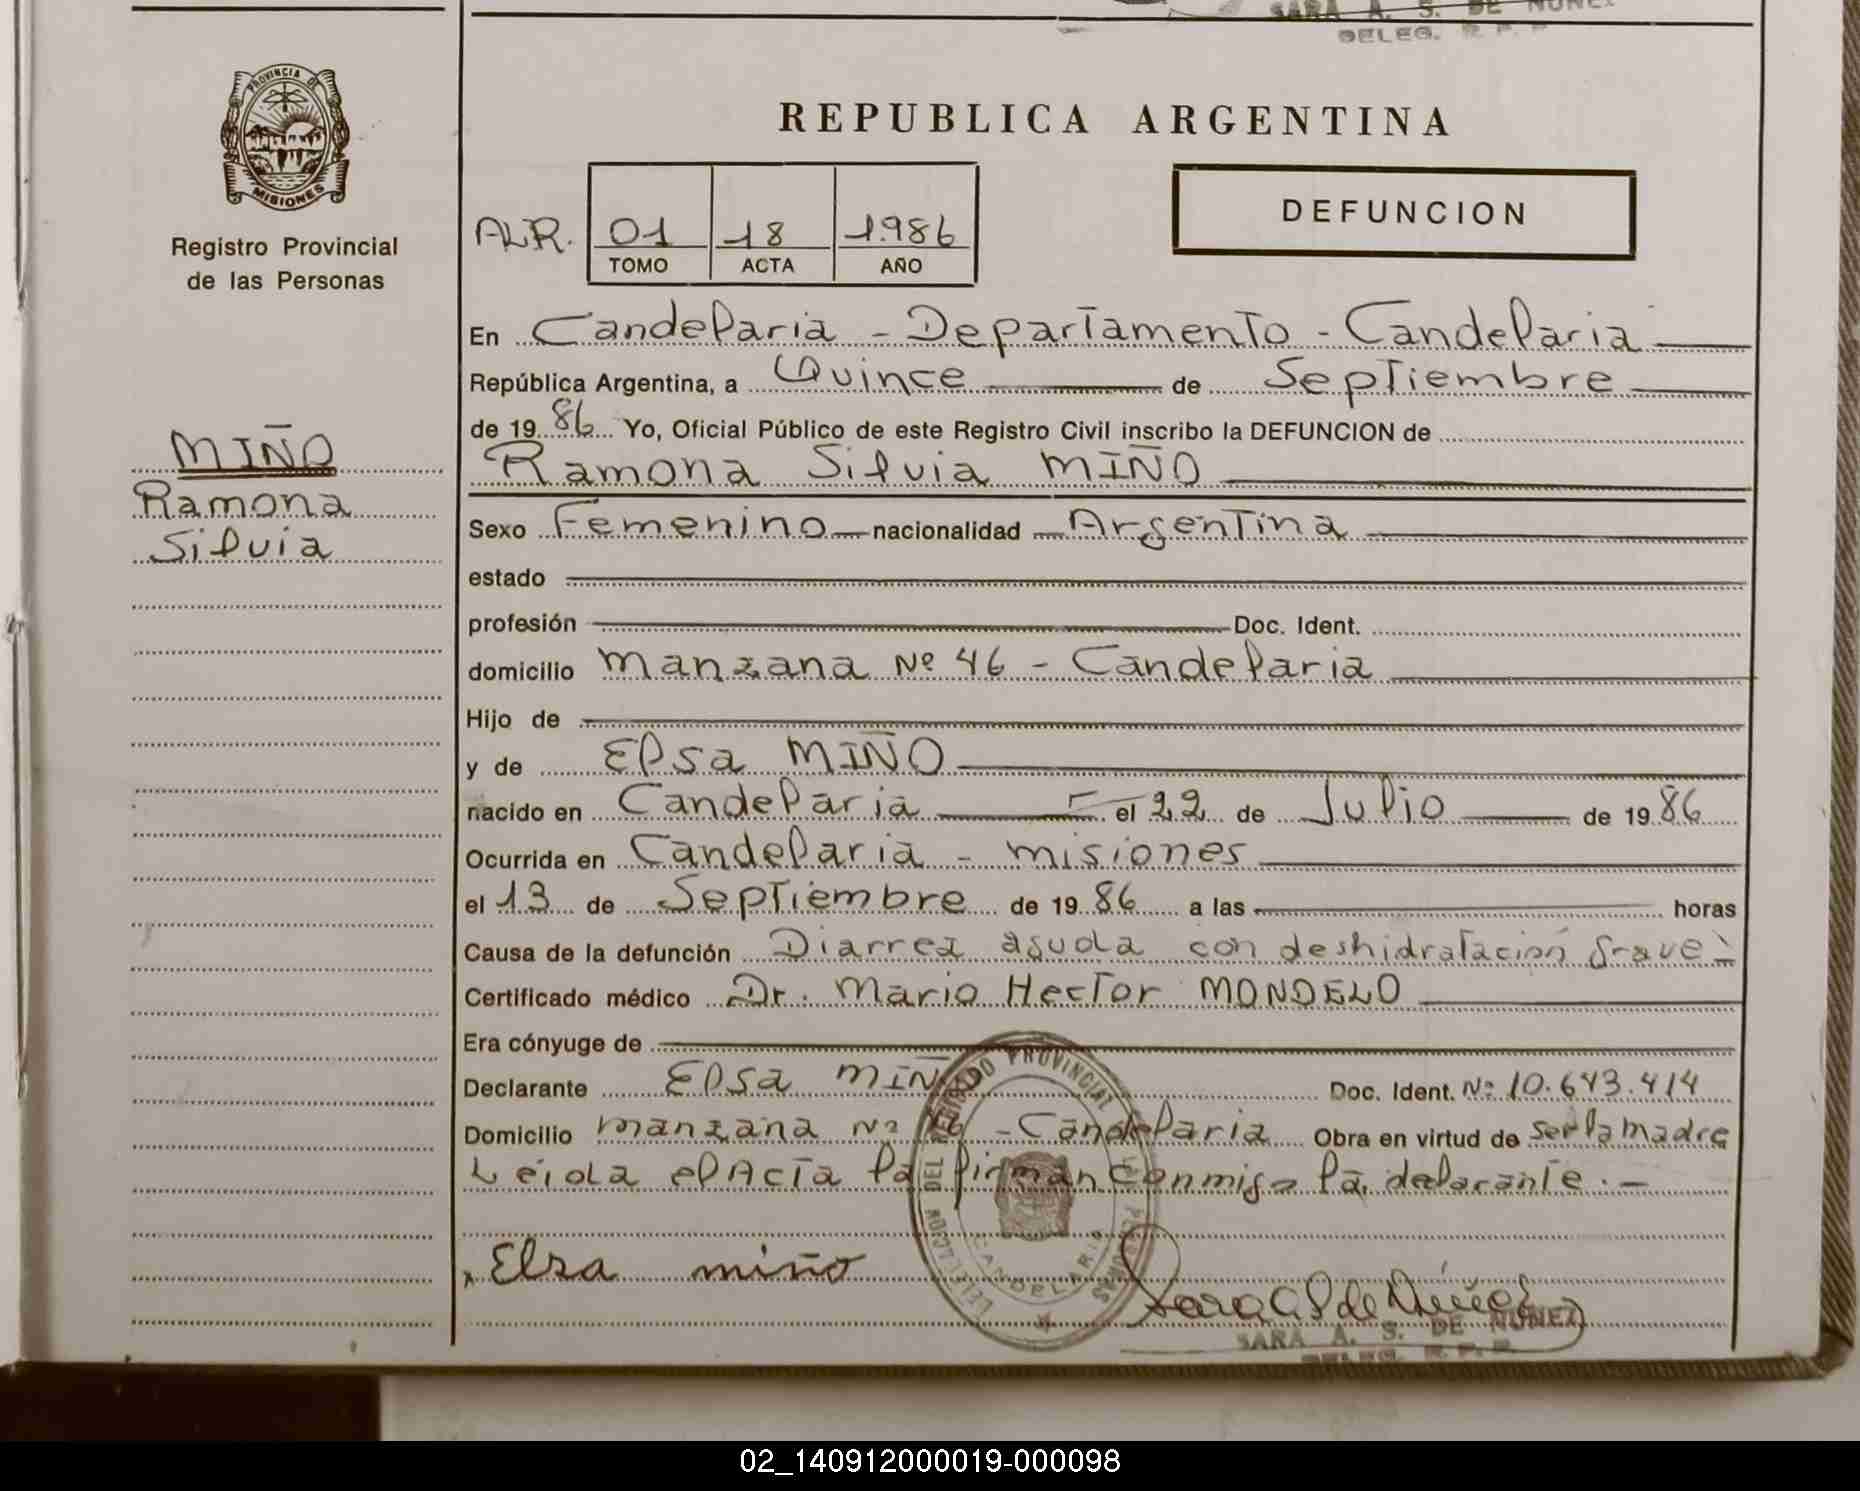 SARA A. S. DE NUÑEZ
DELEG. R. P. P.
PROVINCIA DE
MISIONES
Registro Provincial
de las Personas
REPUBLICA ARGENTINA
DEFUNCION
ALR. 01 18 1.986
TOMO ACTA AÑO
En Candelaria - Departamento - Candelaria
República Argentina, a Quince de Septiembre
de 19 86 Yo, Oficial Público de este Registro Civil inscribo la DEFUNCION de
Ramona Silvia MIÑO
MIÑO
Ramona
Silvia
Sexo Femenino nacionalidad Argentina
estado
profesión Doc. Ident.
domicilio Manzana Nº 46 - Candelaria
Hijo de
y de Elsa MIÑO
nacido en Candelaria el 22 de Julio de 19 86
Ocurrida en Candelaria - Misiones
el 13 de Septiembre de 19 86 a las horas
Causa de la defunción Diarrea aguda con deshidratación grave
Certificado médico Dr. Mario Hector MONDELO
Era cónyuge de
Declarante Elsa MIÑO Doc. Ident. Nº 10.643.414
Domicilio Manzana Nº - Candelaria Obra en virtud de ser la madre
Leida el Acta la firman conmigo la declarante.-
Elsa miño
Sara A S de Núñez
SARA A. S. DE NUÑEZ
DELEG. R. P. P.
CANDELARIA
02_140912000019-000098